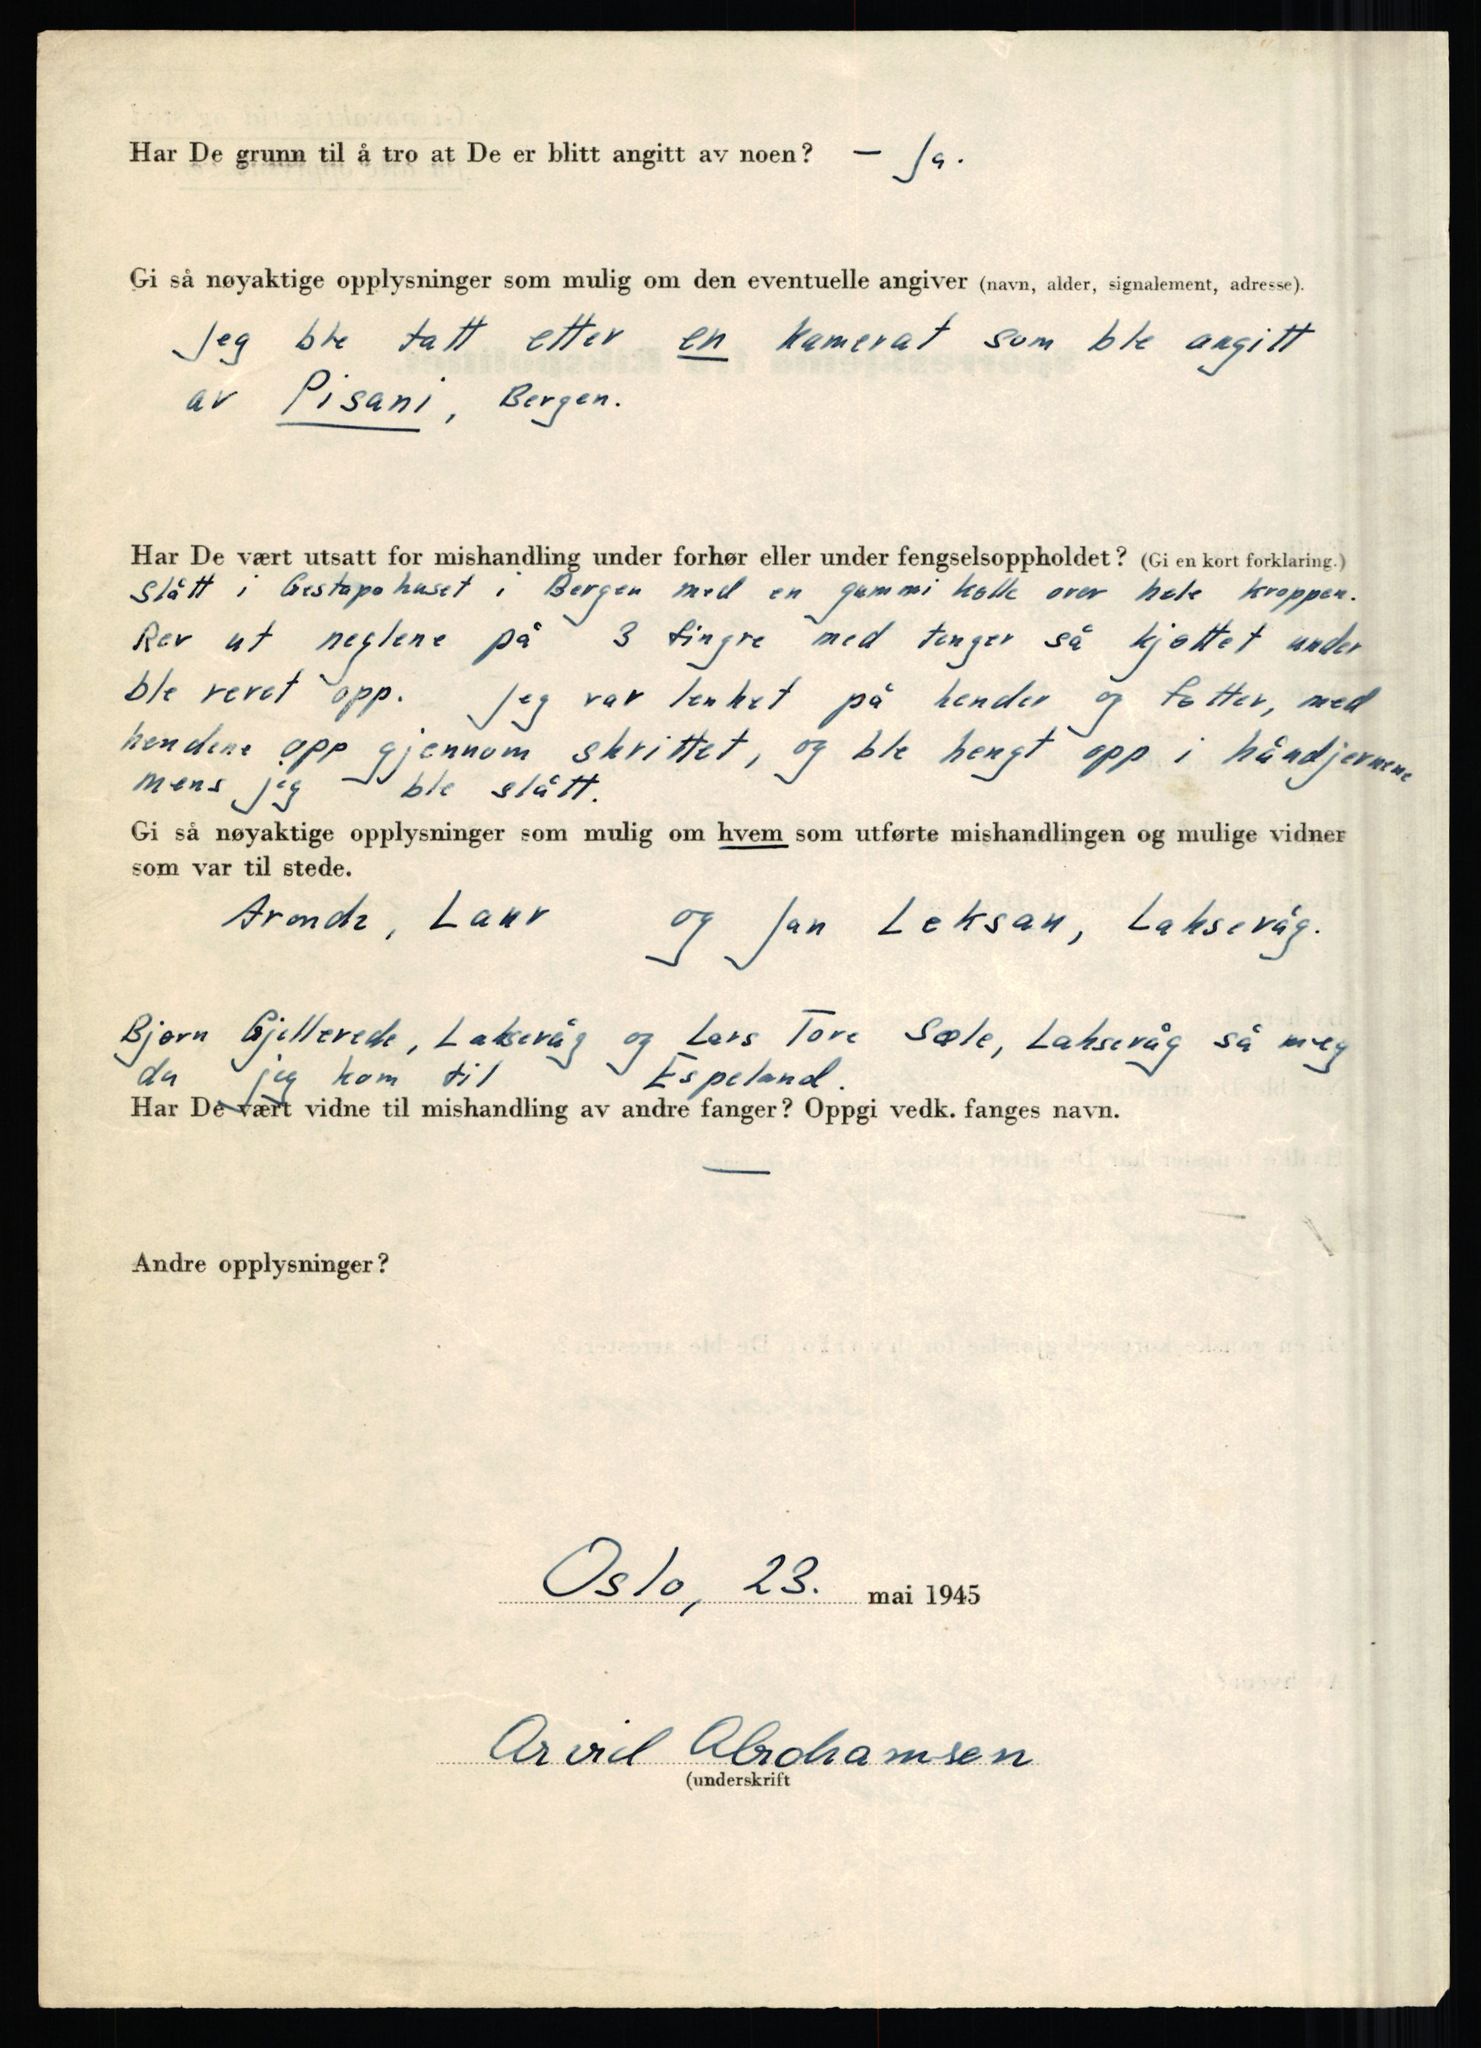 Har De grunn til å tro at De er blitt angitt av noen? – Ja.
Gi så nøyaktige opplysninger som mulig om den eventuelle angiver (navn, alder, signalement, adresse).
Jeg ble tatt etter en kamerat som ble angitt
av Pisani, Bergen.
Har De vært utsatt for mishandling under forhør eller under fengselsoppholdet? (Gi en kort forklaring.)
Slått i Gestapohuset i Bergen med en gummi kølle over hele kroppen.
Rev ut neglene på 3 fingre med tenger så kjøttet under
ble revet opp. Jeg var lenket på hender og føtter, med
hendene opp gjennom skrittet, og ble hengt opp i håndjernene
mens jeg ble slått.
Gi så nøyaktige opplysninger som mulig om hvem som utførte mishandlingen og mulige vidner
som var til stede.
Laur og Jan Leksan, Laksevåg.
Bjørn Laksevåg og Lars Tore Sæle, Laksevåg så meg
da jeg kom til Espeland.
Har De vært vidne til mishandling av andre fanger? Oppgi vedk. fanges navn.
—
Andre opplysninger?
Oslo, 23. mai 1945
Arvid Abrahamsen
(underskrift